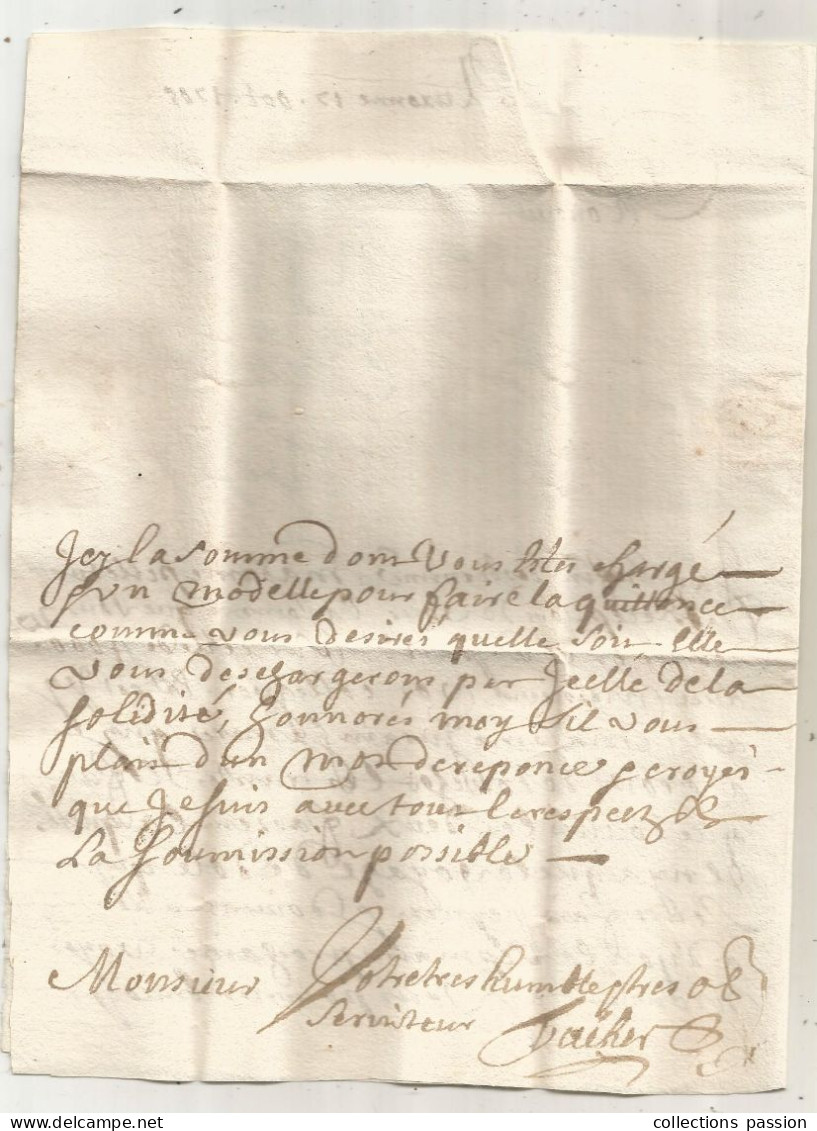 Jcy la somme dont vous Etes chargé
Et un modelle pour faire la quittance
comme vous desirés quelle soit Elle
vous deschargerons par Jcelle de la
solidité, honnorés moy sil vous
plait d'un mot de reponce Et croyés
que Je suis avec tout le respect Et
La soumission possible
Monsieur Votre tres humble Et tres ob
serviteur Vacher
collections passion